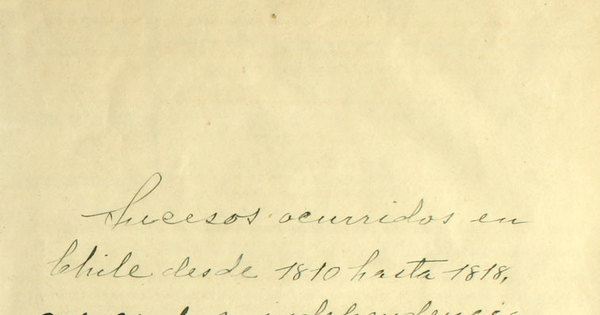 Sucesos ocurridos en
Chile desde 1810 hasta 1818,
independencia